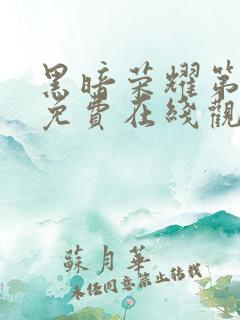 黑暗荣耀第
免費在綫觀
蘇月華
未经同意禁止转载